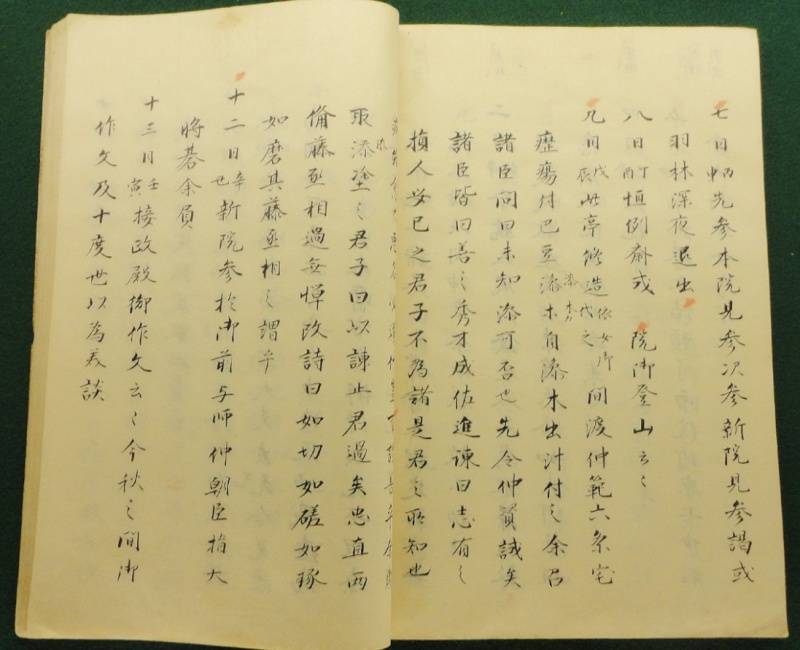 七日丙申先参本院見参次参新院見参謁或
羽林深夜退出
八日丁酉恒例斎戒 院御登山云々
九日戊戌此亭修造依女御代之間渡仲範六条宅
歴痬付巴豆漆木自漆木出汁付之余召
諸臣問曰未知漆可否也先令仲資誡矣
諸臣皆曰善之秀才成佐進諫曰志有之
損人安已之君子不為諸是君之所知也
取漆塗之君子曰以諫止君過矣忠直両
備藤丞相過無憚改詩曰如切如磋如琢
如磨其藤丞相之謂乎
十二日辛丑新院参於御前与師仲朝臣指大
将碁余負
十三日壬寅接政殿御作文云々今秋之間御
作文及十度世以為美談